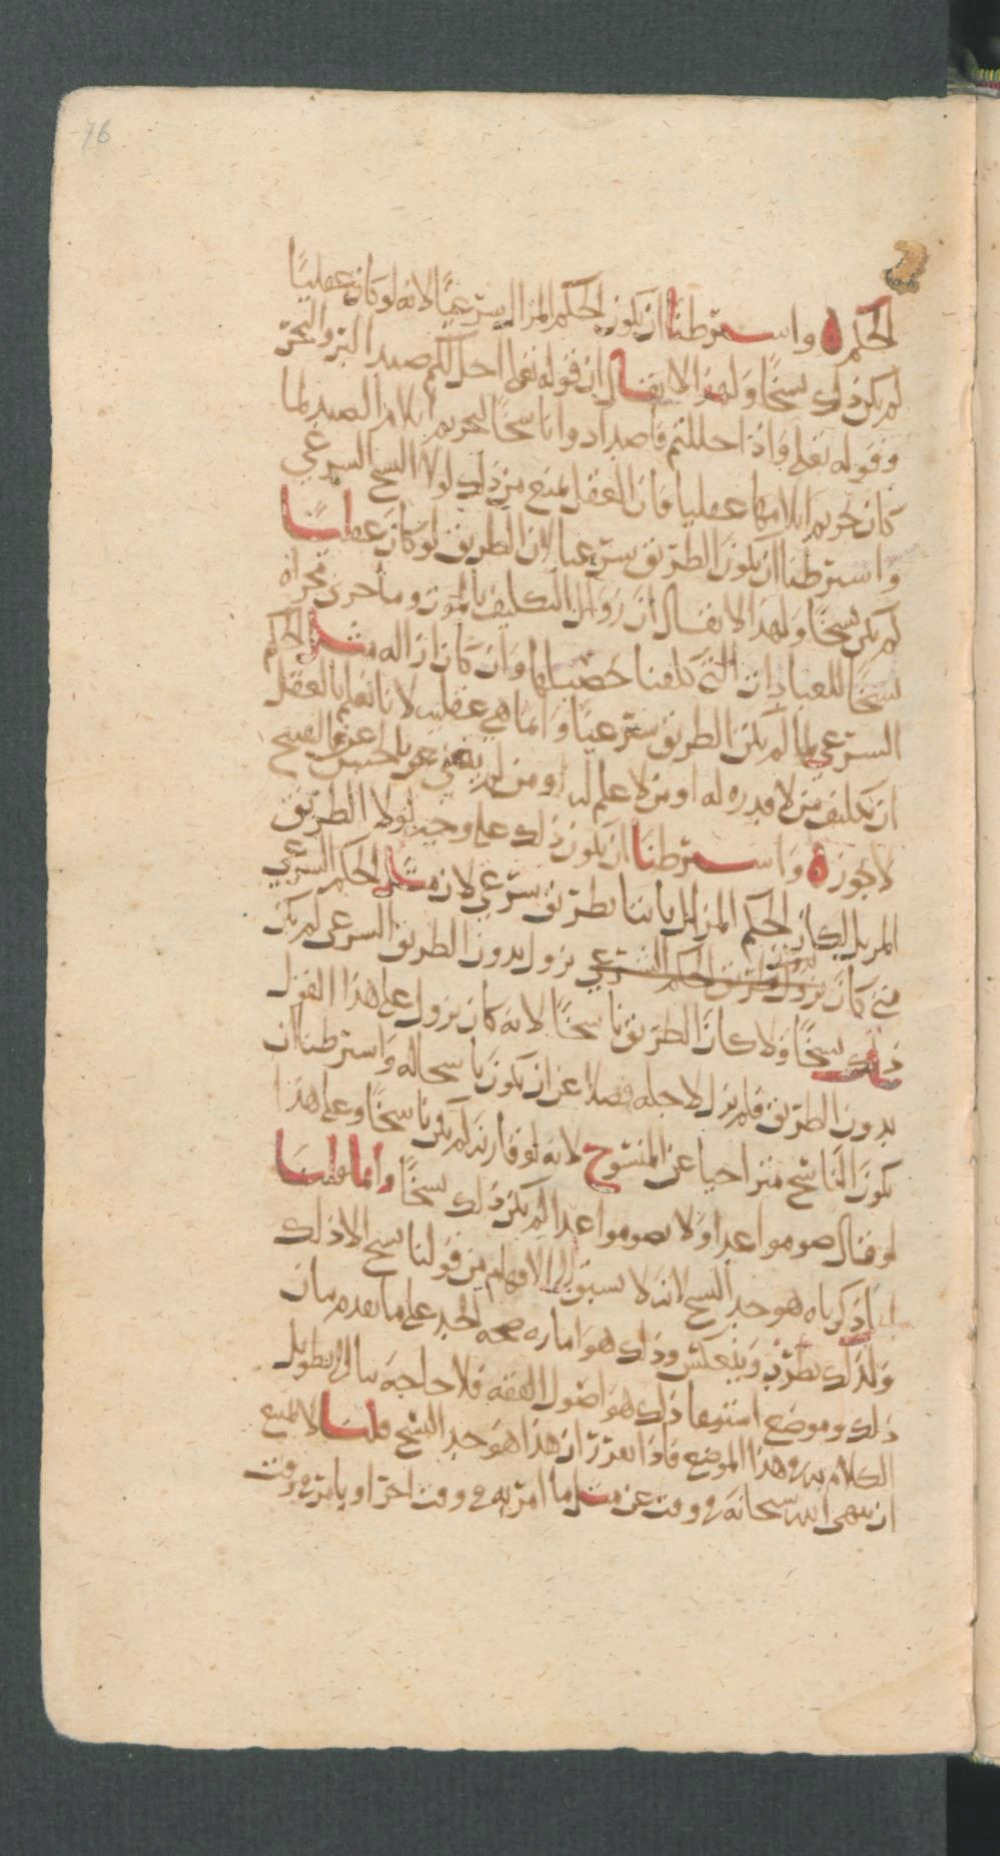 76
الحكم ه واشترطنا ان يكون الحكم المزال شرعيًا لانه لو كان عقليًا
لم يكن ذلك نسخًا ولهذا لا يقال ان قوله تعلى احل لكم صيد البر والبحر
وقوله تعلى واذا حللتم فاصطادوا ناسخًا لتحريم ايلام الصيد لما
كان تحريم ايلامها عقليا فان العقل يمنع من ذلك لولا النسخ الشرعي
واشترطنا ان يكون الطريق شرعيا لان الطريق لو كان عقليًا
لم يكن نسخًا ولهذا لا يقال ان زوال التكليف بالموت وما جرى مجراه
نسخا للعبادات التي كلفنا وان كان ازاله مثل الحكم
الشرعي لما لم يكن الطريق شرعيًا وانما هي عقليه لانا نعلم بالعقل
ان تكليف من لا قدره له او من لا علم له او من لم
لا يجوز ه واشترطنا ان يكون ذلك على وجه لولا الطريق
المزيل لكان الحكم المزال ثابتا بطريق شرعي لان مثل الحكم الشرعي
متى كان يزول بدون الطريق الشرعي لم يكن
ذلك نسخًا ولا كان الطريق ناسخًا لانه كان يزول على هذا القول
بدون الطريق فلم يزل لاجله فضلا عن ان يكون ناسخا له واشترطنا ان
يكون الناسخ متراخيا عن المنسوخ لانه لو قارنه لم يكن ناسخًا وعلى هذا
لو قال صوموا غدا ولا تصوموا غدا لم يكن ذلك نسخًا وانما قلنا
ان ما ذكرناه هو حد النسخ لانه لا يسبق الى الافهام من قولنا نسخ الا ذلك
ولذلك يطرد وينعكس وذلك هو اماره صحه الحد على ما تقدم بيان
ذلك وموضع استيفا ذلك هو اصول الفقه فلا حاجه بنا الى تطويل
الكلام به في هذا الموضع فاذا تقرر ان هذا هو حد النسخ قلنا لا يمتنع
ان ينهى الله سبحانه في وقت عن مثل ما امر به في وقت اخر او يامر في وقت